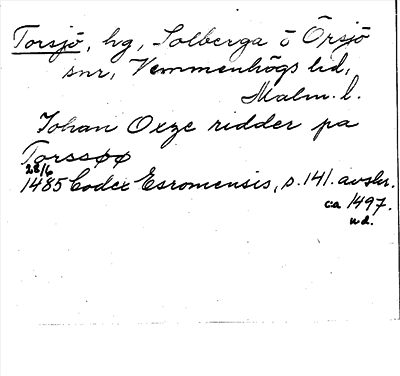 Torsjö, hg, Solberga o Örsjö
snr, Vemmenhögs hd,
Malm. l.
Johan Oxze ridder pa
Torssøø
28/6
1485 Codex Esromensis, s. 141. avskr.
ca 1497.
nd.